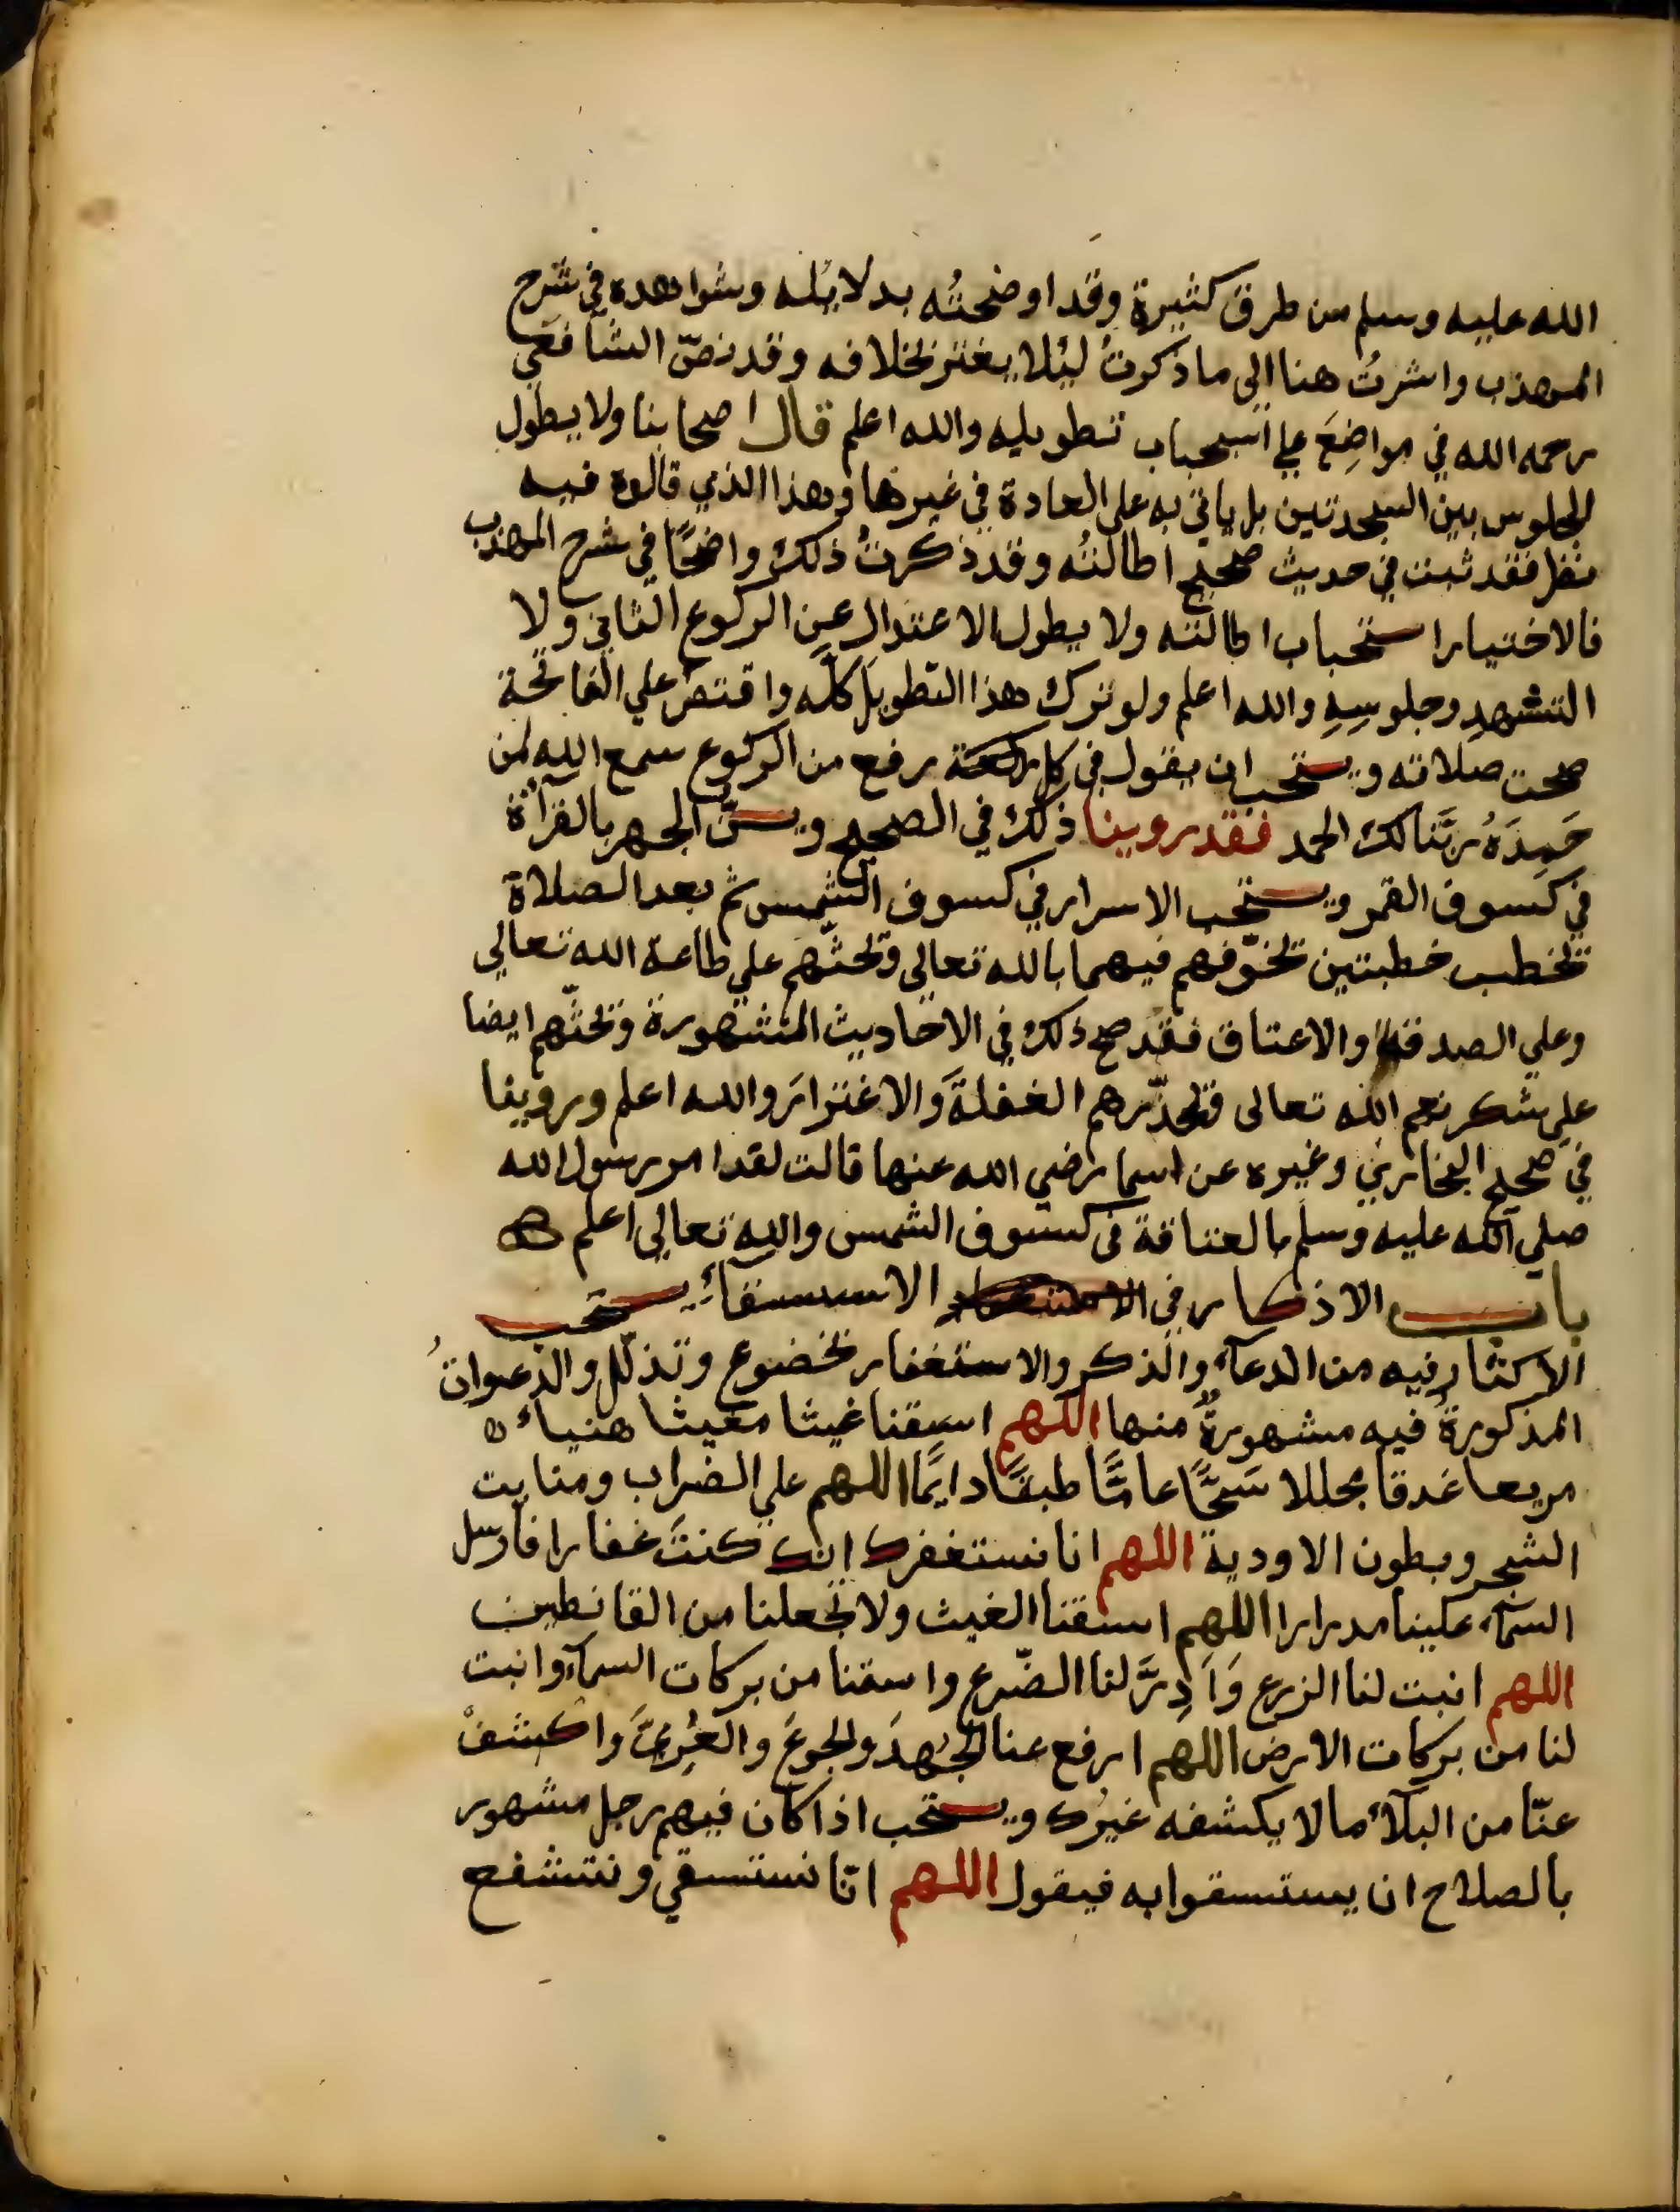 الله عليه وسلم من طرق كثيرة وقد اوضحتُه بدلايله وشواهده في شرح
المهذب واشرتُ هنا الى ما ذكرتُ لئلا يغتر بخلافه وقد نصّ الشافعي
رحمه الله في مواضِعَ على استحباب تطويله والله اعلم قال اصحابنا ولا يطول
الجلوس بين السجدتين بل ياتي به على العادة في غيرها وهذا الذي قالوه فيه
نظر فقد ثبت في حديث صحيح اطالتُه وقد ذكرتُ ذلك واضحًا في شرح المهذب
فالاختيار استحباب اطالته ولا يطول الاعتدال عن الركوع الثاني ولا
التشهدِ وجلوسِهِ والله اعلم ولو ترك هذا التطويل كلّه واقتصر علي الفاتحة
صحت صلاته ويستحب ان يقول في كل ركعة رفع من الركوع سمع الله لمن
حَمِدَهُ ربَّنا لك الحمد فقد روينا ذلك في الصحيح ويسنّ الجهر بالقرأة
في كسوف القمر ويستحب الاسرار في كسوف الشمس ثم بعد الصلاة
تخطب خطبتين تخوّفهم فيهما بالله تعالى وتحثّهم علي طاعة الله تعالي
وعلي الصدقة والاعتاق فقد صح ذلك في الاحاديث المشهورة وتحثّهم ايضا
علي شكر نعم الله تعالى وتحذّرهم الغفلةَ والاغترارَ والله اعلم وروينا
في صحيح البخاري وغيره عن اسما رضي الله عنها قالت لقد امر رسول الله
صلي الله عليه وسلم بالعتاقة في كسوف الشمس والله تعالي اعلم
باب الاذكار في الاستسقآء يستحب
الاكثار فيه من الدعآء والذكر والاستغفار بخضوع وتذلّل والدعواتُ
المذكورةُ فيه مشهورةٌ منها اللهم اسقنا غيثا مغيثا هنياء
مريعا غدقا مجللا سَحًّا عامًّا طبقًا دايمًا اللهم علي الضراب ومنابت
الشجر وبطون الاودية اللهم انا نستغفرك انك كنتَ غفارا فارسل
السمآء علينا مدرارا اللهم اسقنا الغيث ولا تجعلنا من القانطين
اللهم انبت لنا الزرع وَاَدِرَّ لنا الضّرع واسقنا من بركات السمآء وانبت
لنا من بركات الارض اللهم ارفع عنا الجُهدَ والجوعَ والعُرِيَّ واكشفْ
عنّا من البلآء ما لا يكشفه غيرُك ويستحب اذا كان فيهم رجل مشهور
بالصلاح ان يستسقوا به فيقول اللهم انّا نستسقي ونتشفع